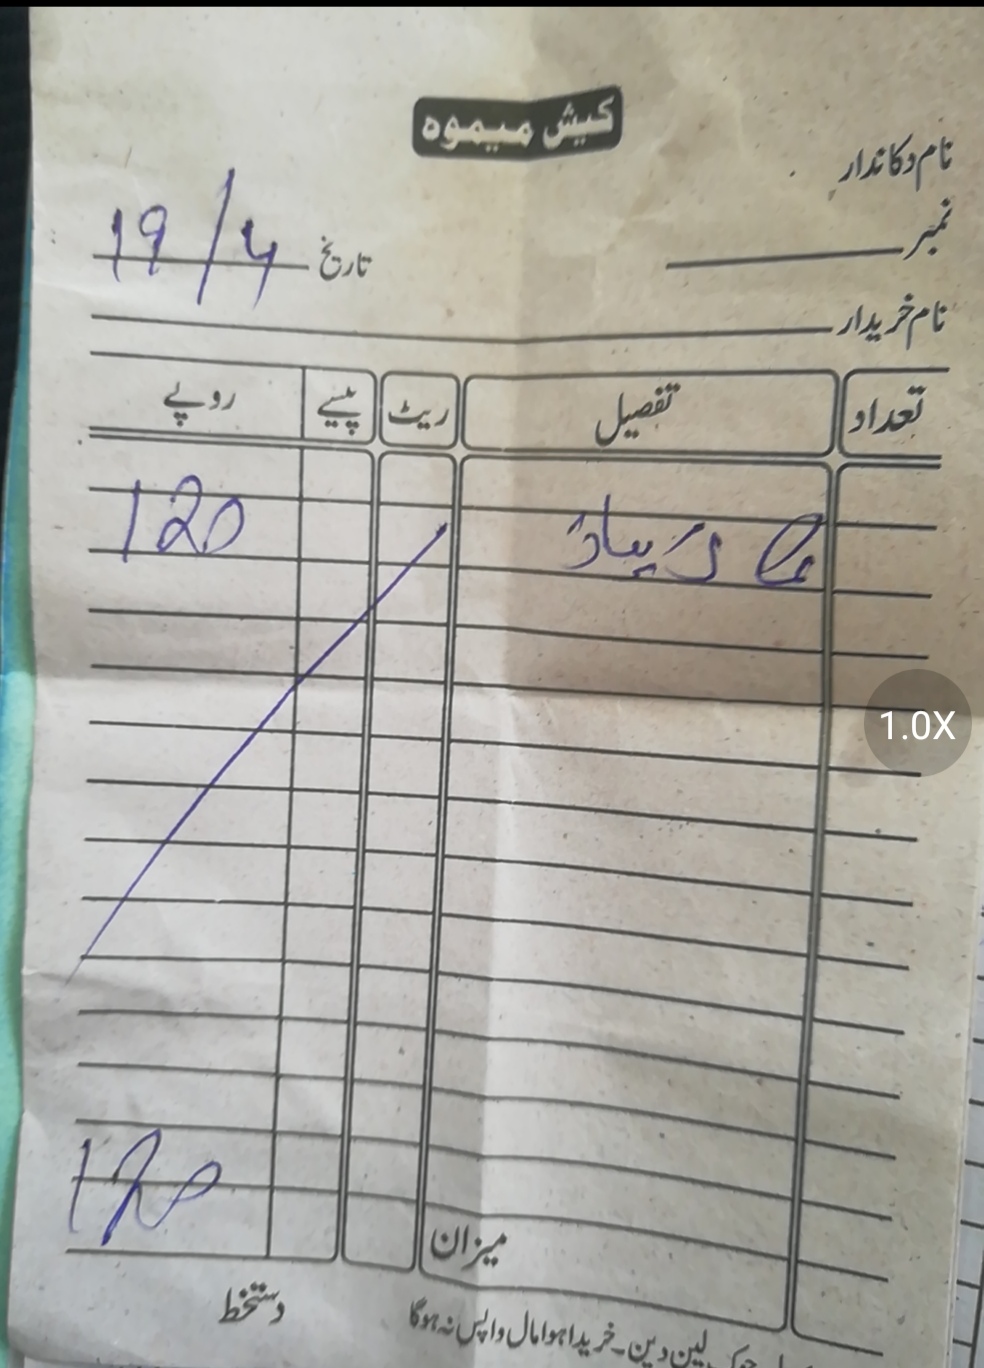 کیش میموہ
نام دکاندار
نمبر
تاریخ 19/4
نام خریدار
تعداد تفصیل ریٹ پیسے روپے
120
میزان 120
دستخط
لین دین۔ خریدا ہوا مال واپس نہ ہوگا
1.0X